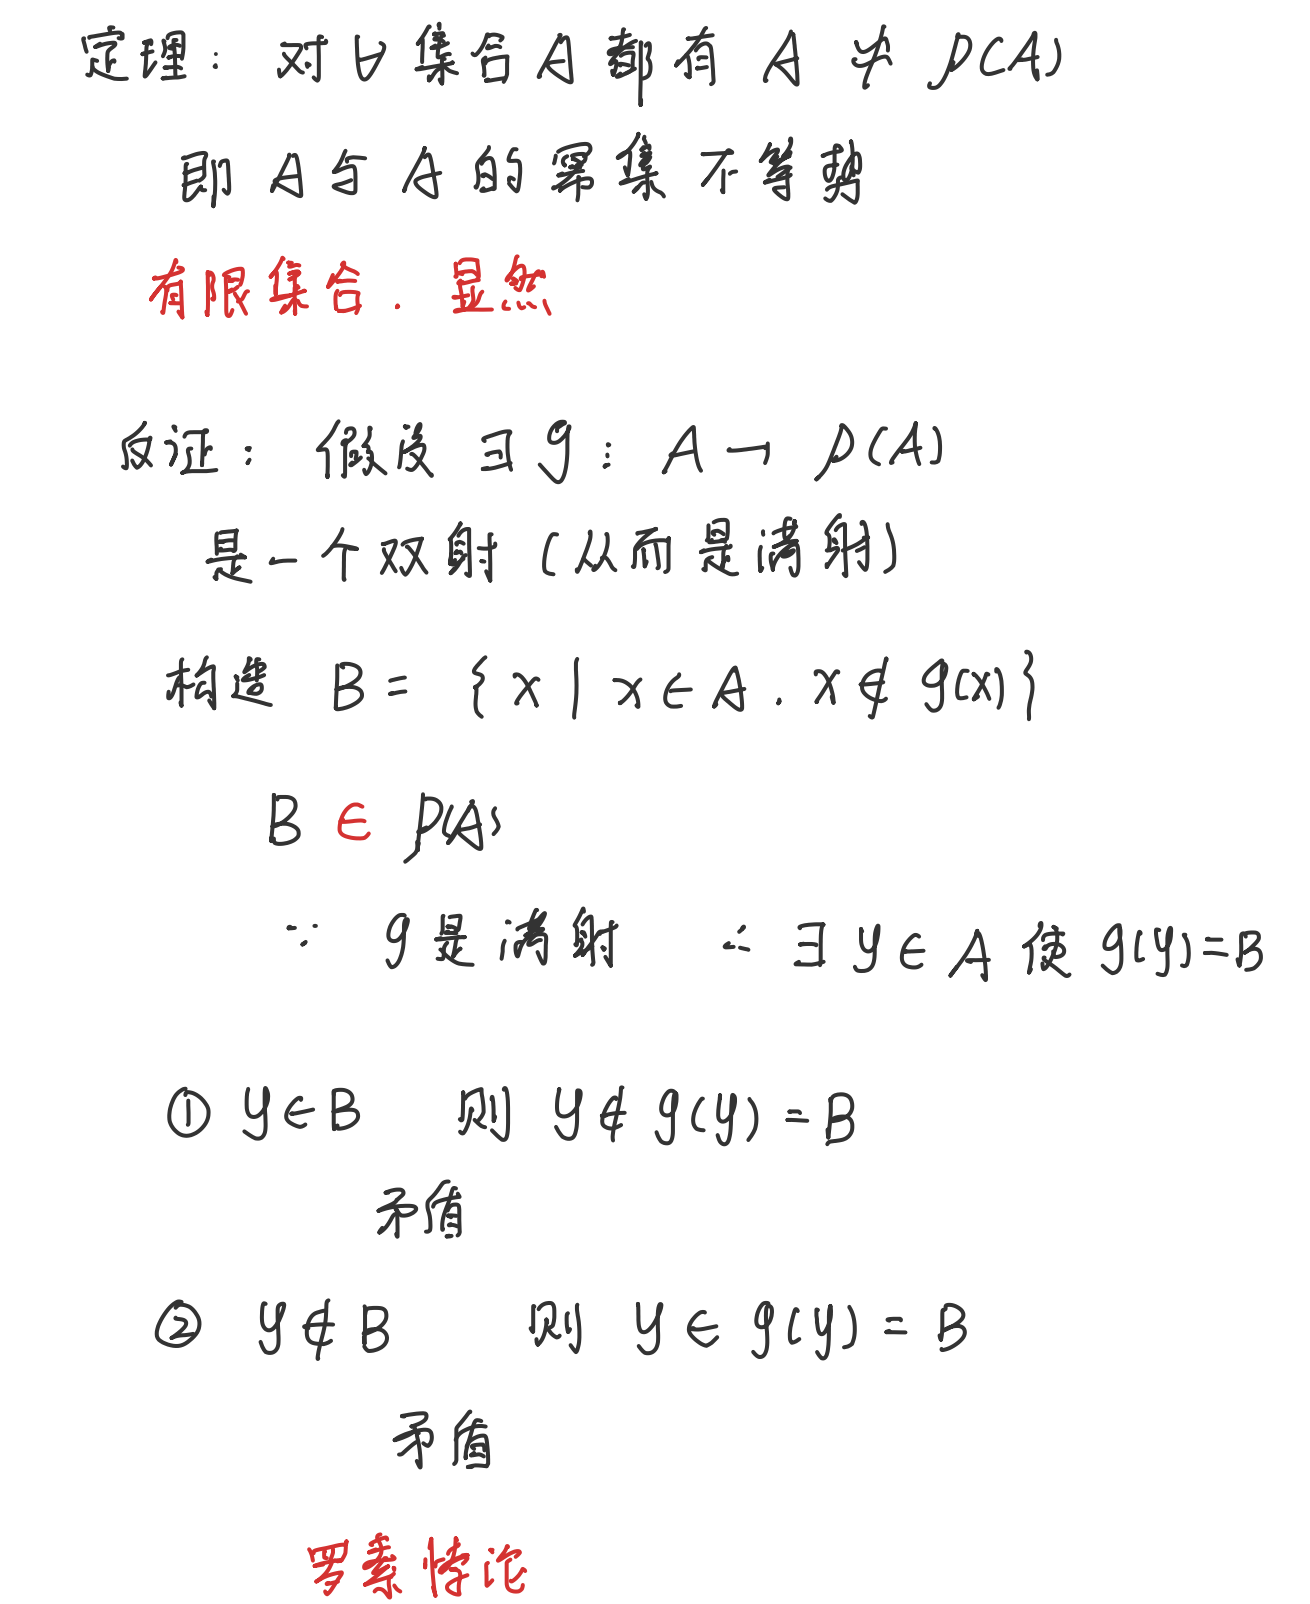 定理: 对∀集合A都有 A ≉ P(A)
即 A 与 A 的幂集不等势
有限集合. 显然
反证: 假设 ∃g: A → P(A)
是一个双射 (从而是满射)
构造 B = {x | x ∈ A . x ∉ g(x)}
B ∈ P(A)
∵ g是满射 ∴ ∃y ∈ A 使 g(y)=B
① y∈B 则 y ∉ g(y) = B
矛盾
② y ∉ B 则 y ∈ g(y) = B
矛盾
罗素悖论